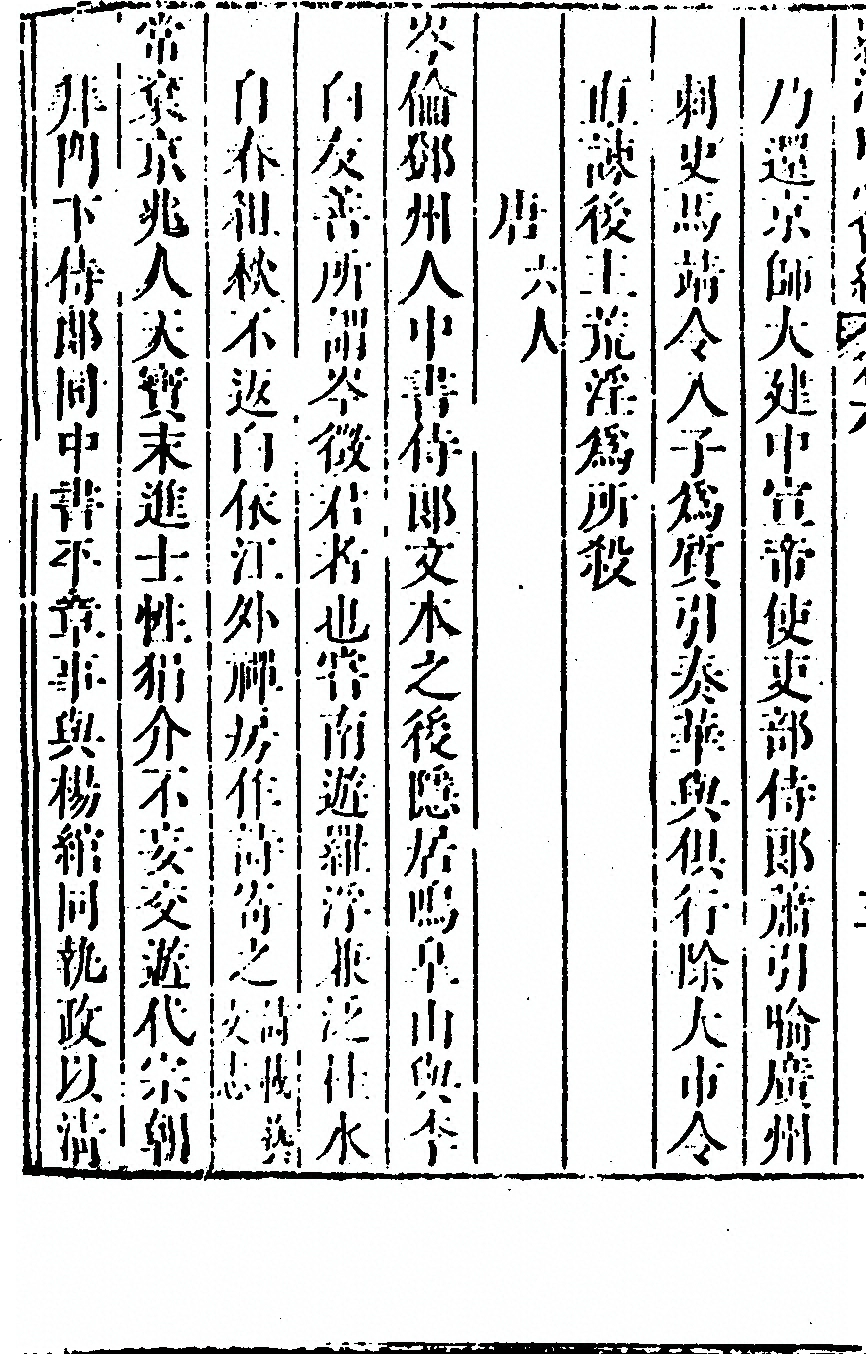 乃還京師大建中宣帝使吏部侍郎蕭引喻廣州
刺史馬靖令入子爲質引奏華與俱行除大市令
直諫後主荒淫爲所殺
唐六人
岑倫鄧州人中書侍郎文本之後隱居鳴臯山與李
白友善所謂岑徵君者也嘗南遊羅浮兼泛桂水
自春徂秋不返白依江外禪房作詩寄之詩載藝文志
常袞京兆人天寶末進士性狷介不妄交遊代宗朝
拜門下侍郎同中書平章事與楊綰同執政以清